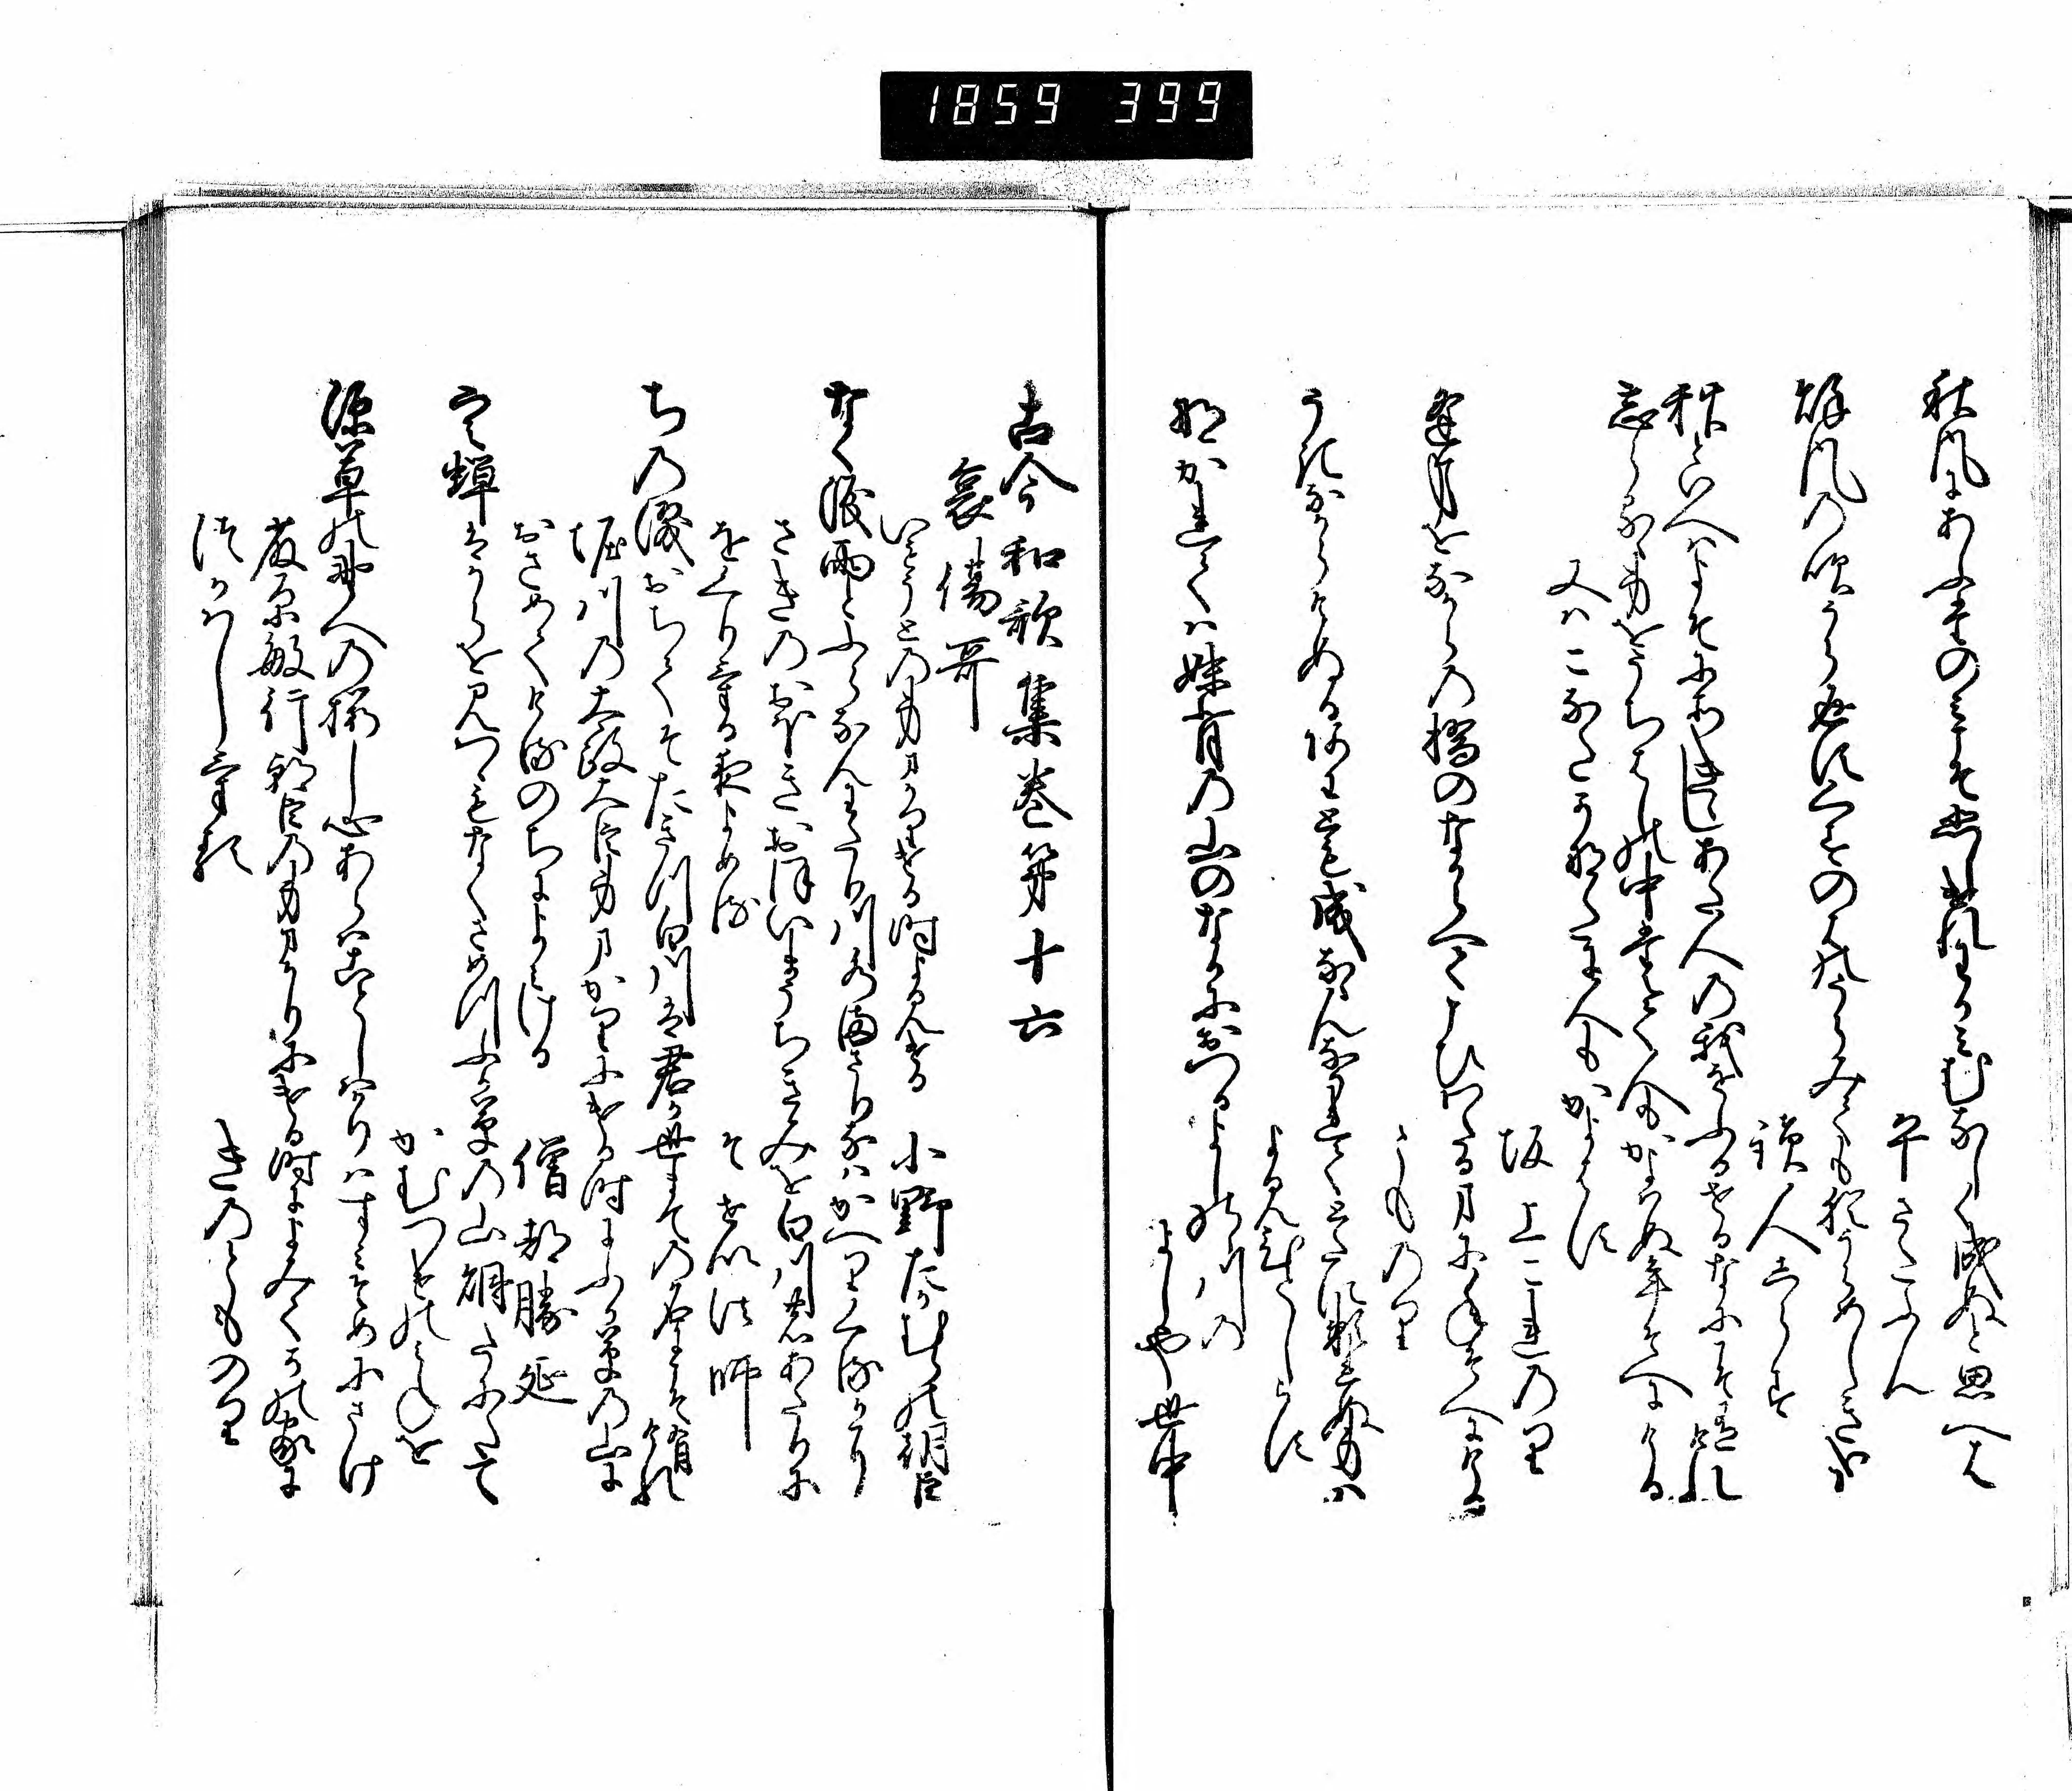 1859 399
秋風にあふたのみこそ悲しけれ我身むなしく成ぬと思へは
平さたふん
秋風の吹うら返すくすの葉のうらみても猶うらめしき哉
読人しらす
秋といへはよそにそきゝしあた人の我をふるせる名にこそ有けれ
忘らるゝ身をうちはしの中たえて人もかよはぬ年そへにける
又はこなたかなたに人もかよはす
坂上これのり
逢事をなからの橋のなからへてこひわたる間に年そへにける
とものり
うきなからけぬるあわとも成なゝんなかれてとたに頼まれぬ身は
よみ人しらす
なかれては妹背の山のなかにおつるよしのゝ川の
よしや世中
古今和歌集巻第十六
哀傷哥
いもうとの身まかりける時よみける
小野たかむらの朝臣
なく涙雨とふらなんわたり川水まさりなはかへりくるかに
さきのおほきおほいまうちきみを白川のあたりに
をくりける夜よめる
そせい法師
ちの涙おちてそたきつ白川は君か世まての名にこそ有けれ
堀川の太政大臣身まかりにける時にふか草の山に
おさめてける後によみける
僧都勝延
空蝉はからを見つゝもなくさめつふか草の山煙たにたて
かむつけのみねを
深草の野への桜し心あらはことしはかりはすみそめにさけ
藤原敏行朝臣の身まかりにける時によみてかの家に
つかはしける
きのとものり